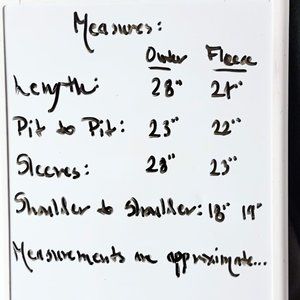 Measures:
Outer Fleece
Length: 28"
Pit to Pit: 23" 22"
Sleeves: 23"
Shoulder to Shoulder: 18"
Measurements are approximate...